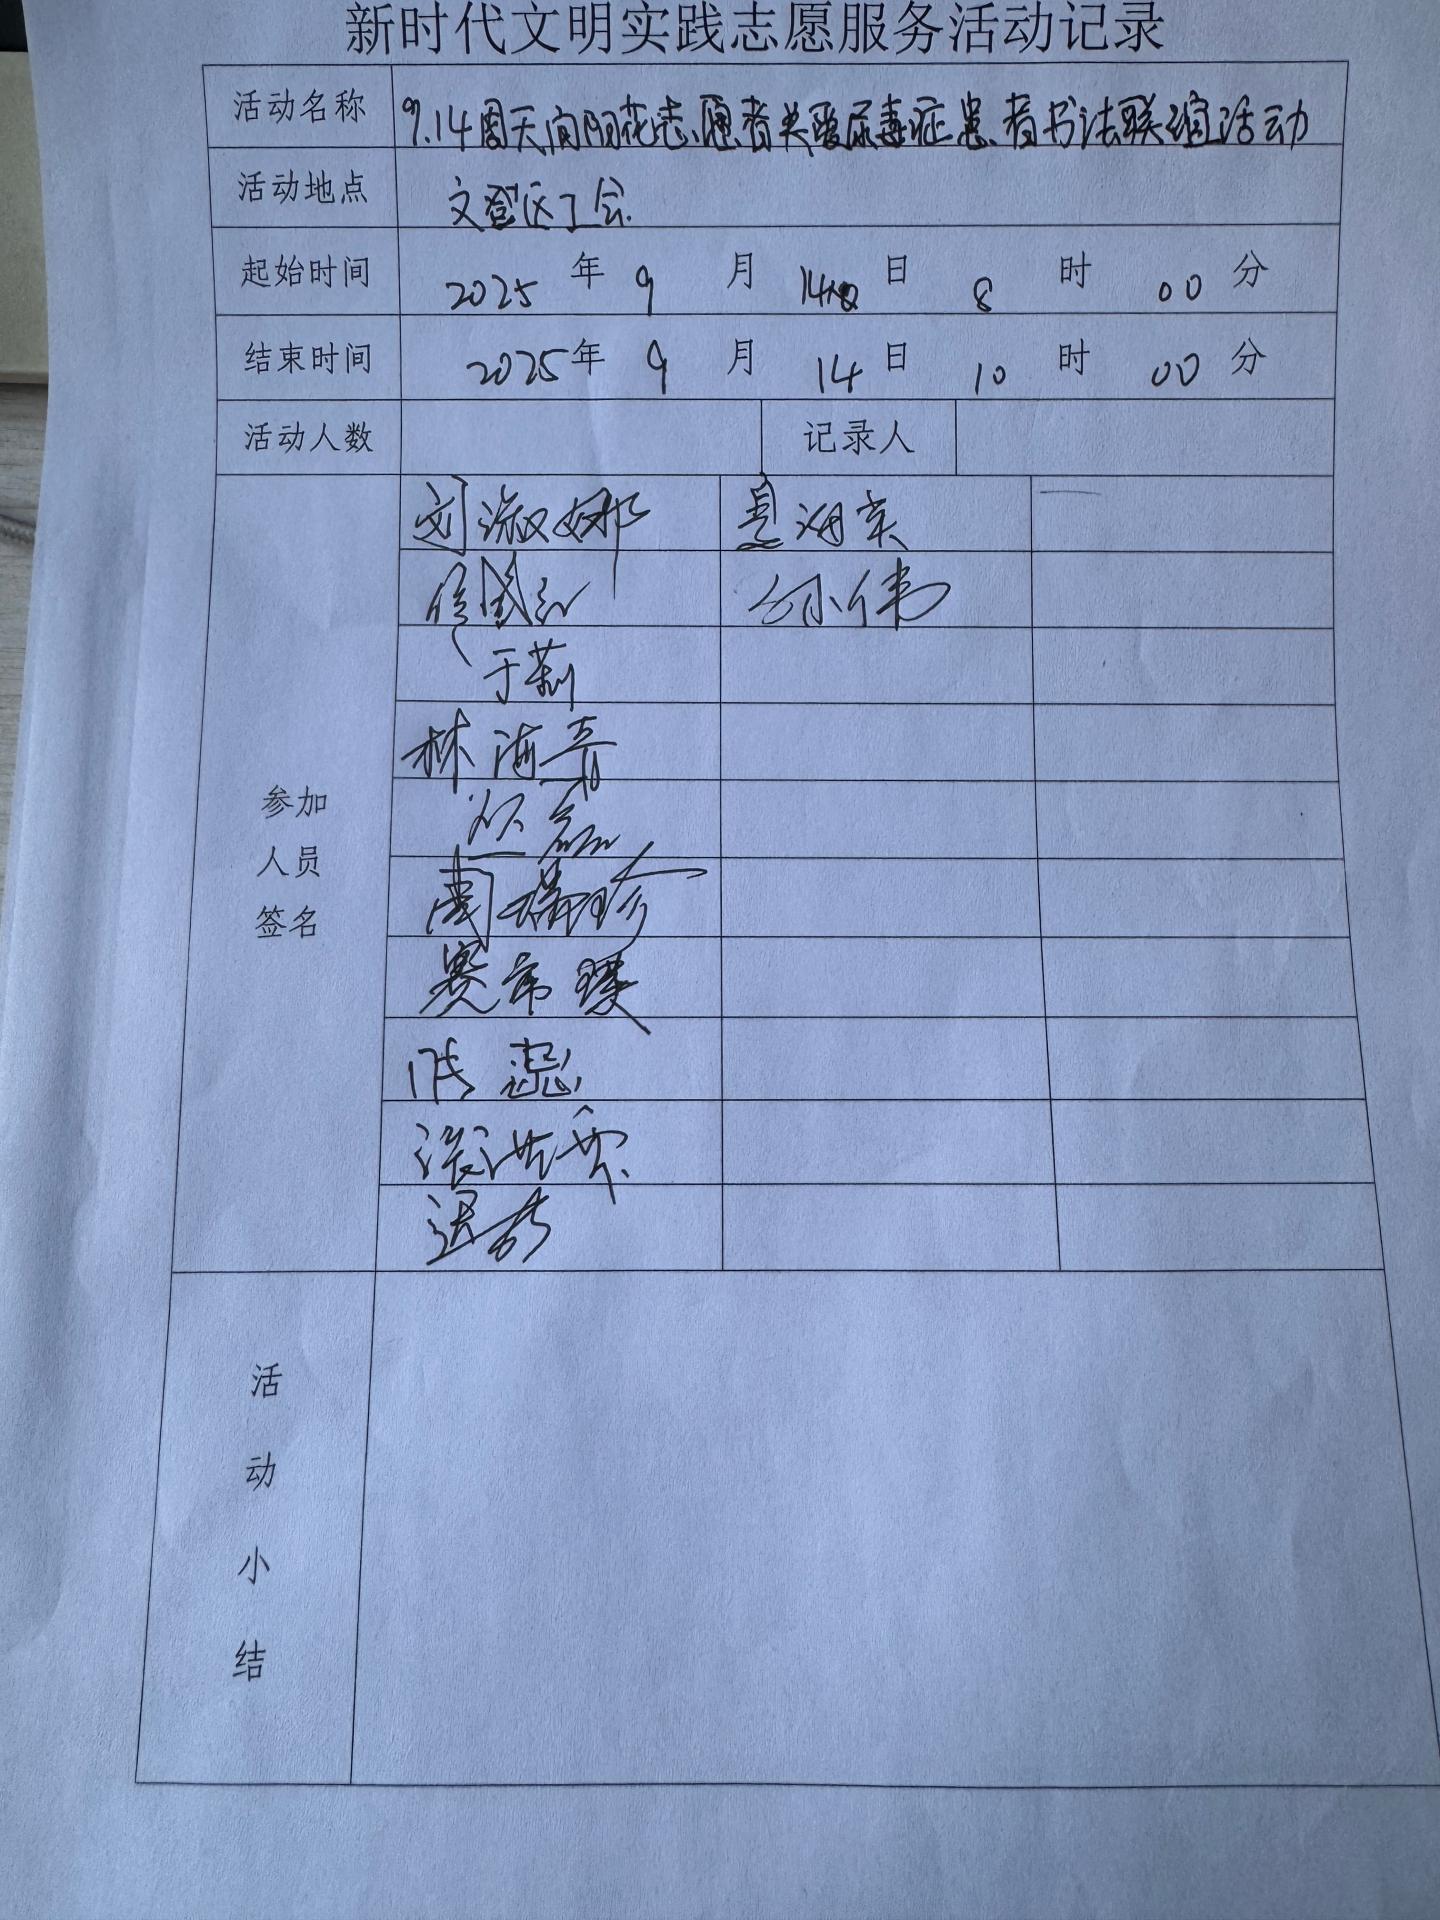 新时代文明实践志愿服务活动记录
活动名称 9.14周天向阳花志愿者关爱尿毒症患者书法联谊活动
活动地点 文登区工会
起始时间 2025 年 9 月 14 日 8 时 00 分
结束时间 2025 年 9 月 14 日 10 时 00 分
活动人数 记录人
参加
人员
签名
刘淑娜
孙伟
于莉
林海
丛磊
周瑞珍
活
动
小
结